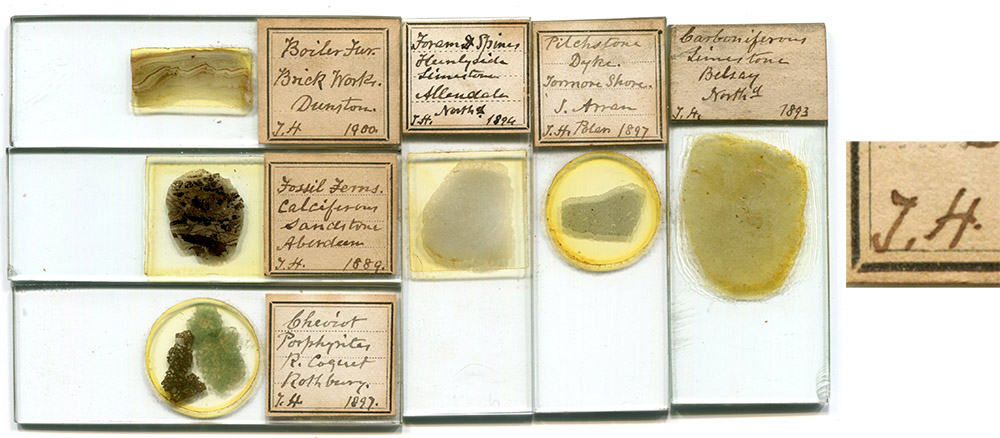 Boiler Fur.
Brick Works.
Dunston.
J.H. 1900.
Foram & Spines
Limestone
Allendale
North.d
J.H. 1894
Pitchstone
Dyke.
Tormore Shore.
S. Arran
J.H. Polar 1897
Carboniferous
Limestone
Belsay
North.d
J.H. 1893
Fossil Ferns.
Calciferous
Sandstone
Aberdeen
J.H. 1889.
Cheviot
Porphyrites
R. Coquet
Rothbury.
J.H 1897.
J.H.